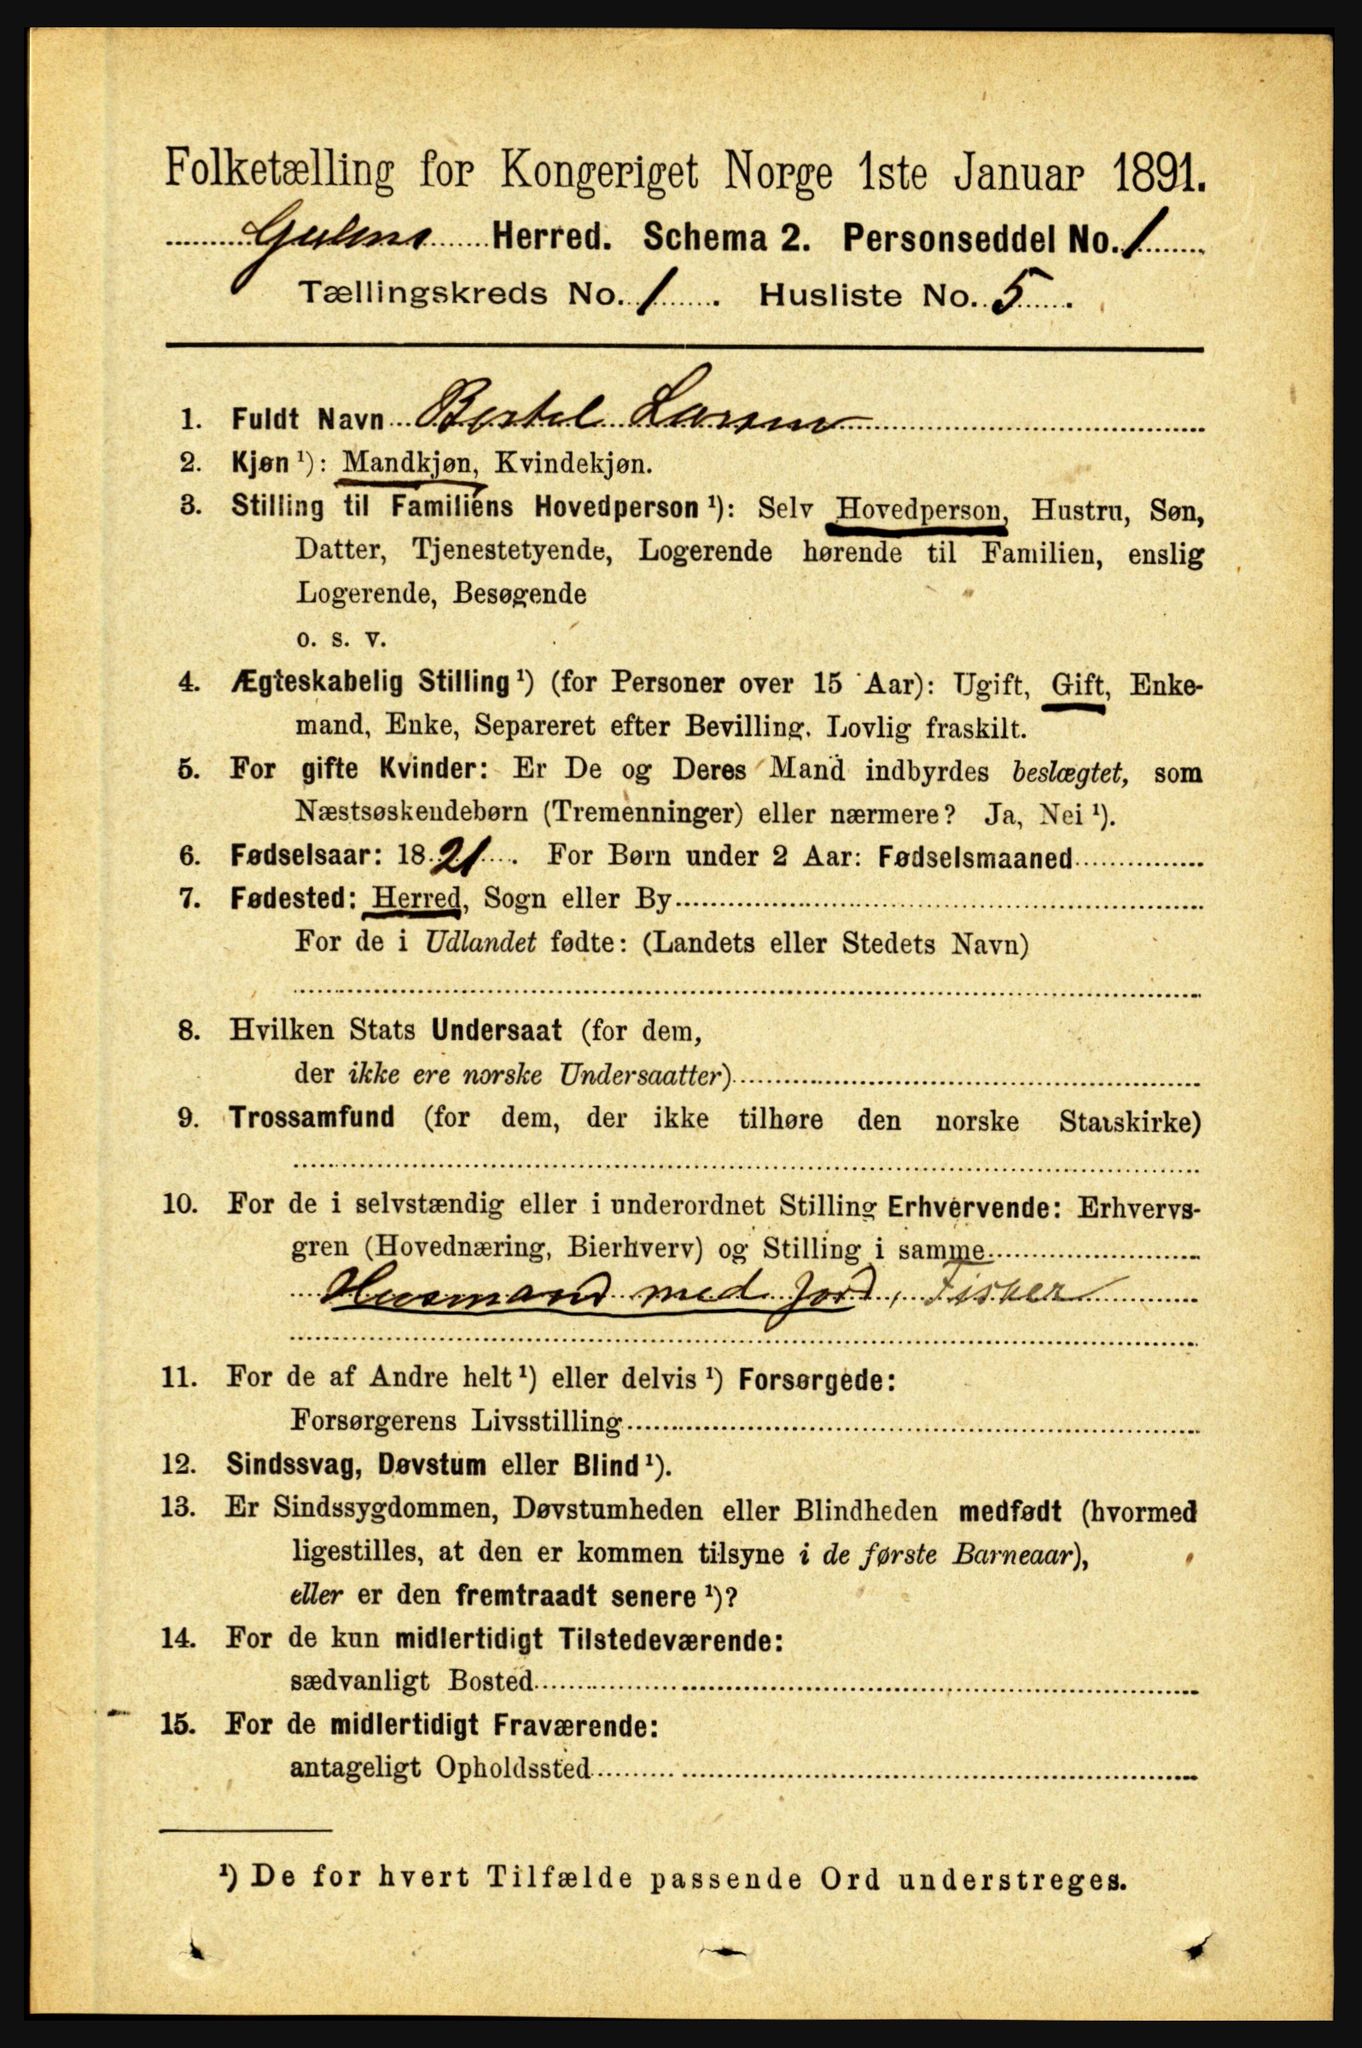 Folketælling for Kongeriget Norge 1ste Januar 1891.
Gulens Herred. Schema 2. Personseddel No. 1
Tællingskreds No. 1. Husliste No. 5.
1. Fuldt Navn Bertel Larsen
2. Kjøn ¹): Mandkjøn, Kvindekjøn.
3. Stilling til Familiens Hovedperson ¹): Selv Hovedperson, Hustru, Søn,
Datter, Tjenestetyende, Logerende hørende til Familien, enslig
Logerende, Besøgende
o. s. v.
4. Ægteskabelig Stilling ¹) (for Personer over 15 Aar): Ugift, Gift, Enke-
mand, Enke, Separeret efter Bevilling. Lovlig fraskilt.
5. For gifte Kvinder: Er De og Deres Mand indbyrdes beslægtet, som
Næstsøskendebørn (Tremenninger) eller nærmere? Ja, Nei ¹).
6. Fødselsaar: 1821. For Børn under 2 Aar: Fødselsmaaned
7. Fødested: Herred, Sogn eller By
For de i Udlandet fødte: (Landets eller Stedets Navn)
8. Hvilken Stats Undersaat (for dem,
der ikke ere norske Undersaatter)
9. Trossamfund (for dem, der ikke tilhøre den norske Statskirke)
10. For de i selvstændig eller i underordnet Stilling Erhvervende: Erhvervs-
gren (Hovednæring, Bierhverv) og Stilling i samme
Husmand med Jord, Fisker
11. For de af Andre helt ¹) eller delvis ¹) Forsørgede:
Forsørgerens Livsstilling
12. Sindssvag, Døvstum eller Blind ¹).
13. Er Sindssygdommen, Døvstumheden eller Blindheden medfødt (hvormed
ligestilles, at den er kommen tilsyne i de første Barneaar),
eller er den fremtraadt senere ¹)?
14. For de kun midlertidigt Tilstedeværende:
sædvanligt Bosted
15. For de midlertidigt Fraværende:
antageligt Opholdssted
¹) De for hvert Tilfælde passende Ord understreges.